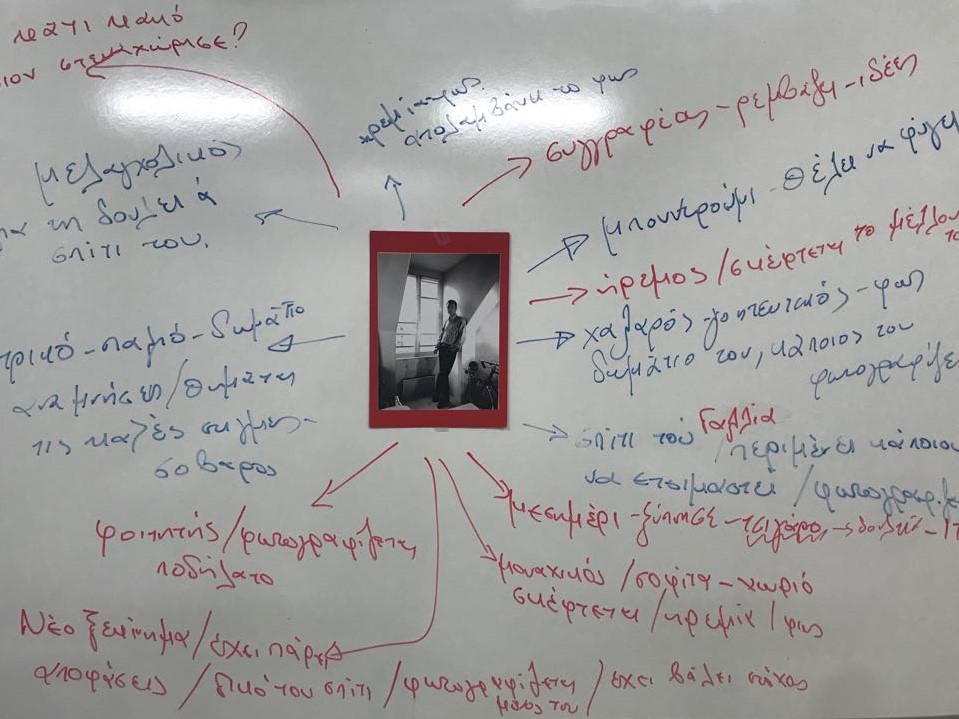 κάτι κακό
τον στενχώρησε?
ηρεμία-φως.
απολαμβάνει το φως
συγγραφέας - ρεμβάζει - ιδέες
μελαγχολικός
για τη δουλειά
σπίτι του.
μπουντρούμι - θέλει να φύγει
ήρεμος / σκέφτεται το μέλλον
το
χαλαρός - γοητευτικός - φως
δωμάτιο του, κάποιος τον
φωτογραφίζει
παλιό - δωμάτιο
αναμνήσεις / θυμάται
τις καλές στιγμές -
σοβαρός
σπίτι του Γαλλία / περιμένει κάποιον
να ετοιμαστεί / φωτογραφίζε
μεσημέρι - ξύπνησε - τσιγάρο → δουλειά -
φοιτητής / φωτογραφίζεται
ποδήλατο
μοναχικός / σοφίτα - χωριό
σκέφτεται / ηρεμία / φως
Νέο ξεκίνημα / έχει πάρει
αποφάσεις / δικό του σπίτι / φωτογραφίζεται / έχει βάλει στόχος
μόνος του